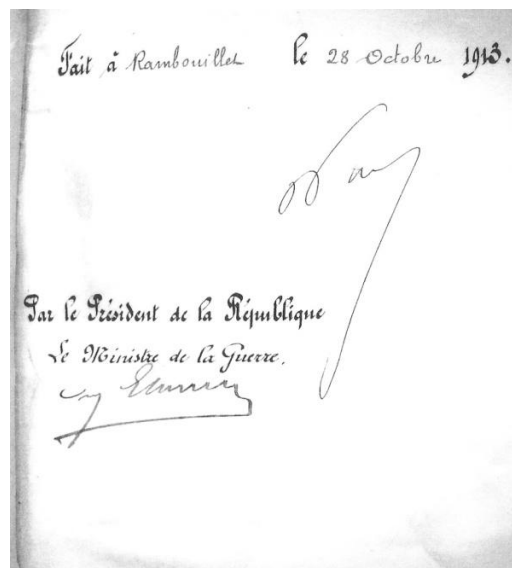 Fait à Rambouillet le 28 Octobre 1913.
Par le Président de la République
Le Ministre de la Guerre.